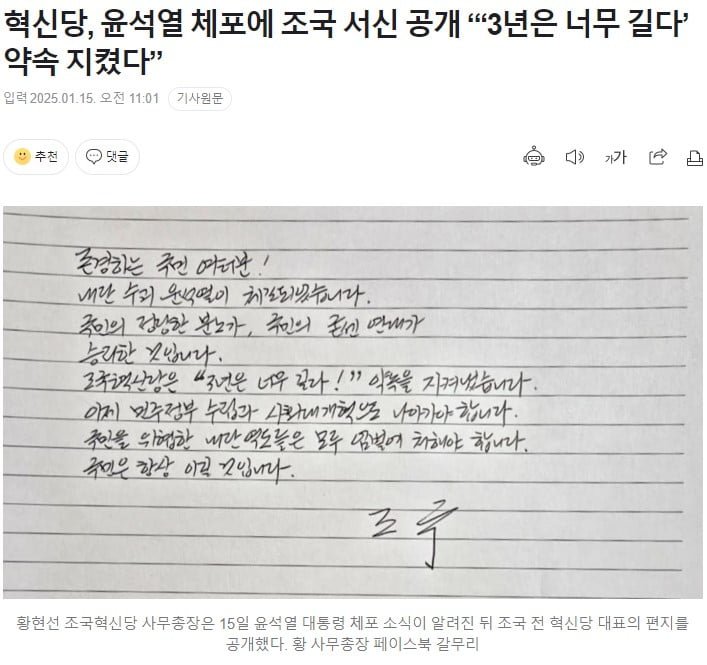 혁신당, 윤석열 체포에 조국 서신 공개 “‘3년은 너무 길다’
약속 지켰다”
입력 2025.01.15. 오전 11:01 기사원문
추천 댓글
가가
존경하는 국민 여러분!
내란 수괴 윤석열이 체포되었습니다.
국민의 정당한 분노가, 국민의 굳센 연대가
승리한 것입니다.
조국혁신당은 “3년은 너무 길다!” 약속을 지켜냈습니다.
이제 민주정부 수립과 사회대개혁으로 나아가야 합니다.
국민을 위협한 내란 역도들은 모두 엄벌에 처해야 합니다.
국민은 항상 이길 것입니다.
조국
황현선 조국혁신당 사무총장은 15일 윤석열 대통령 체포 소식이 알려진 뒤 조국 전 혁신당 대표의 편지를
공개했다. 황 사무총장 페이스북 갈무리